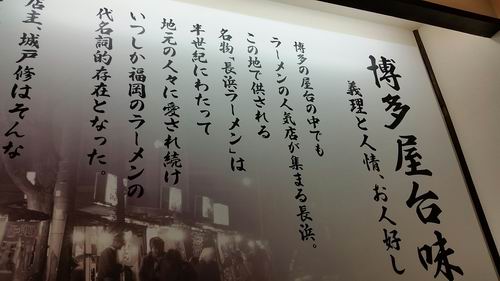 博多屋台味
義理と人情、お人好し
博多の屋台の中でも
ラーメンの人気店が集まる長浜。
この地で供される
名物「長浜ラーメン」は
半世紀にわたって
地元の人々に愛され続け
いつしか福岡のラーメンの
代名詞的存在となった。
店主、城戸修はそんな